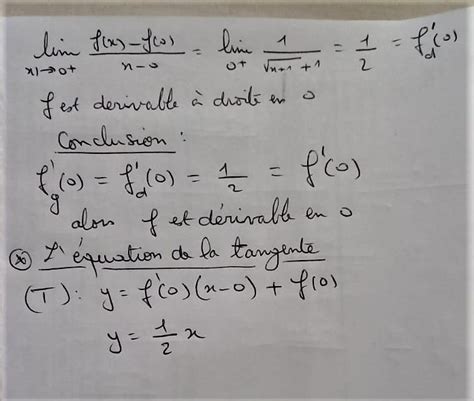 lim f(x)-f(0) / x-0 = lim 1 / √x+1 +1 = 1/2 = f'd(0)
x→0+ 0+
f est derivable à droite en 0
Conclusion :
f'g(0) = f'd(0) = 1/2 = f'(0)
alors f est dérivable en 0
* L'équation de la tangente
(T): y = f'(0)(x-0) + f(0)
y = 1/2 x